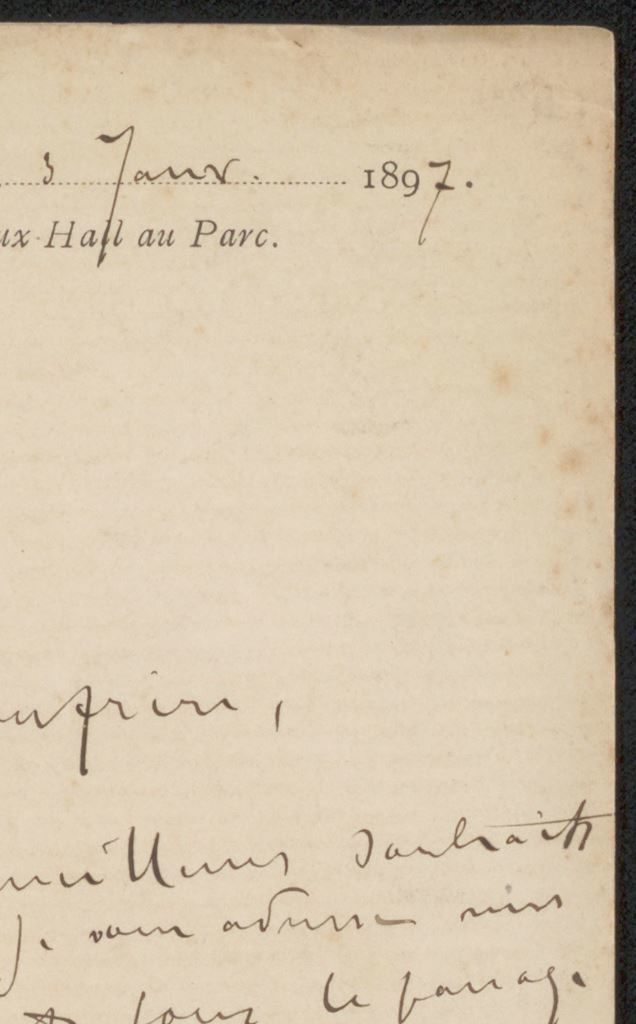 3 Janv. 1897.
ux-Hall au Parc.
onfrère,
meilleurs souhaits
Je vous adresse mes
pour le passage